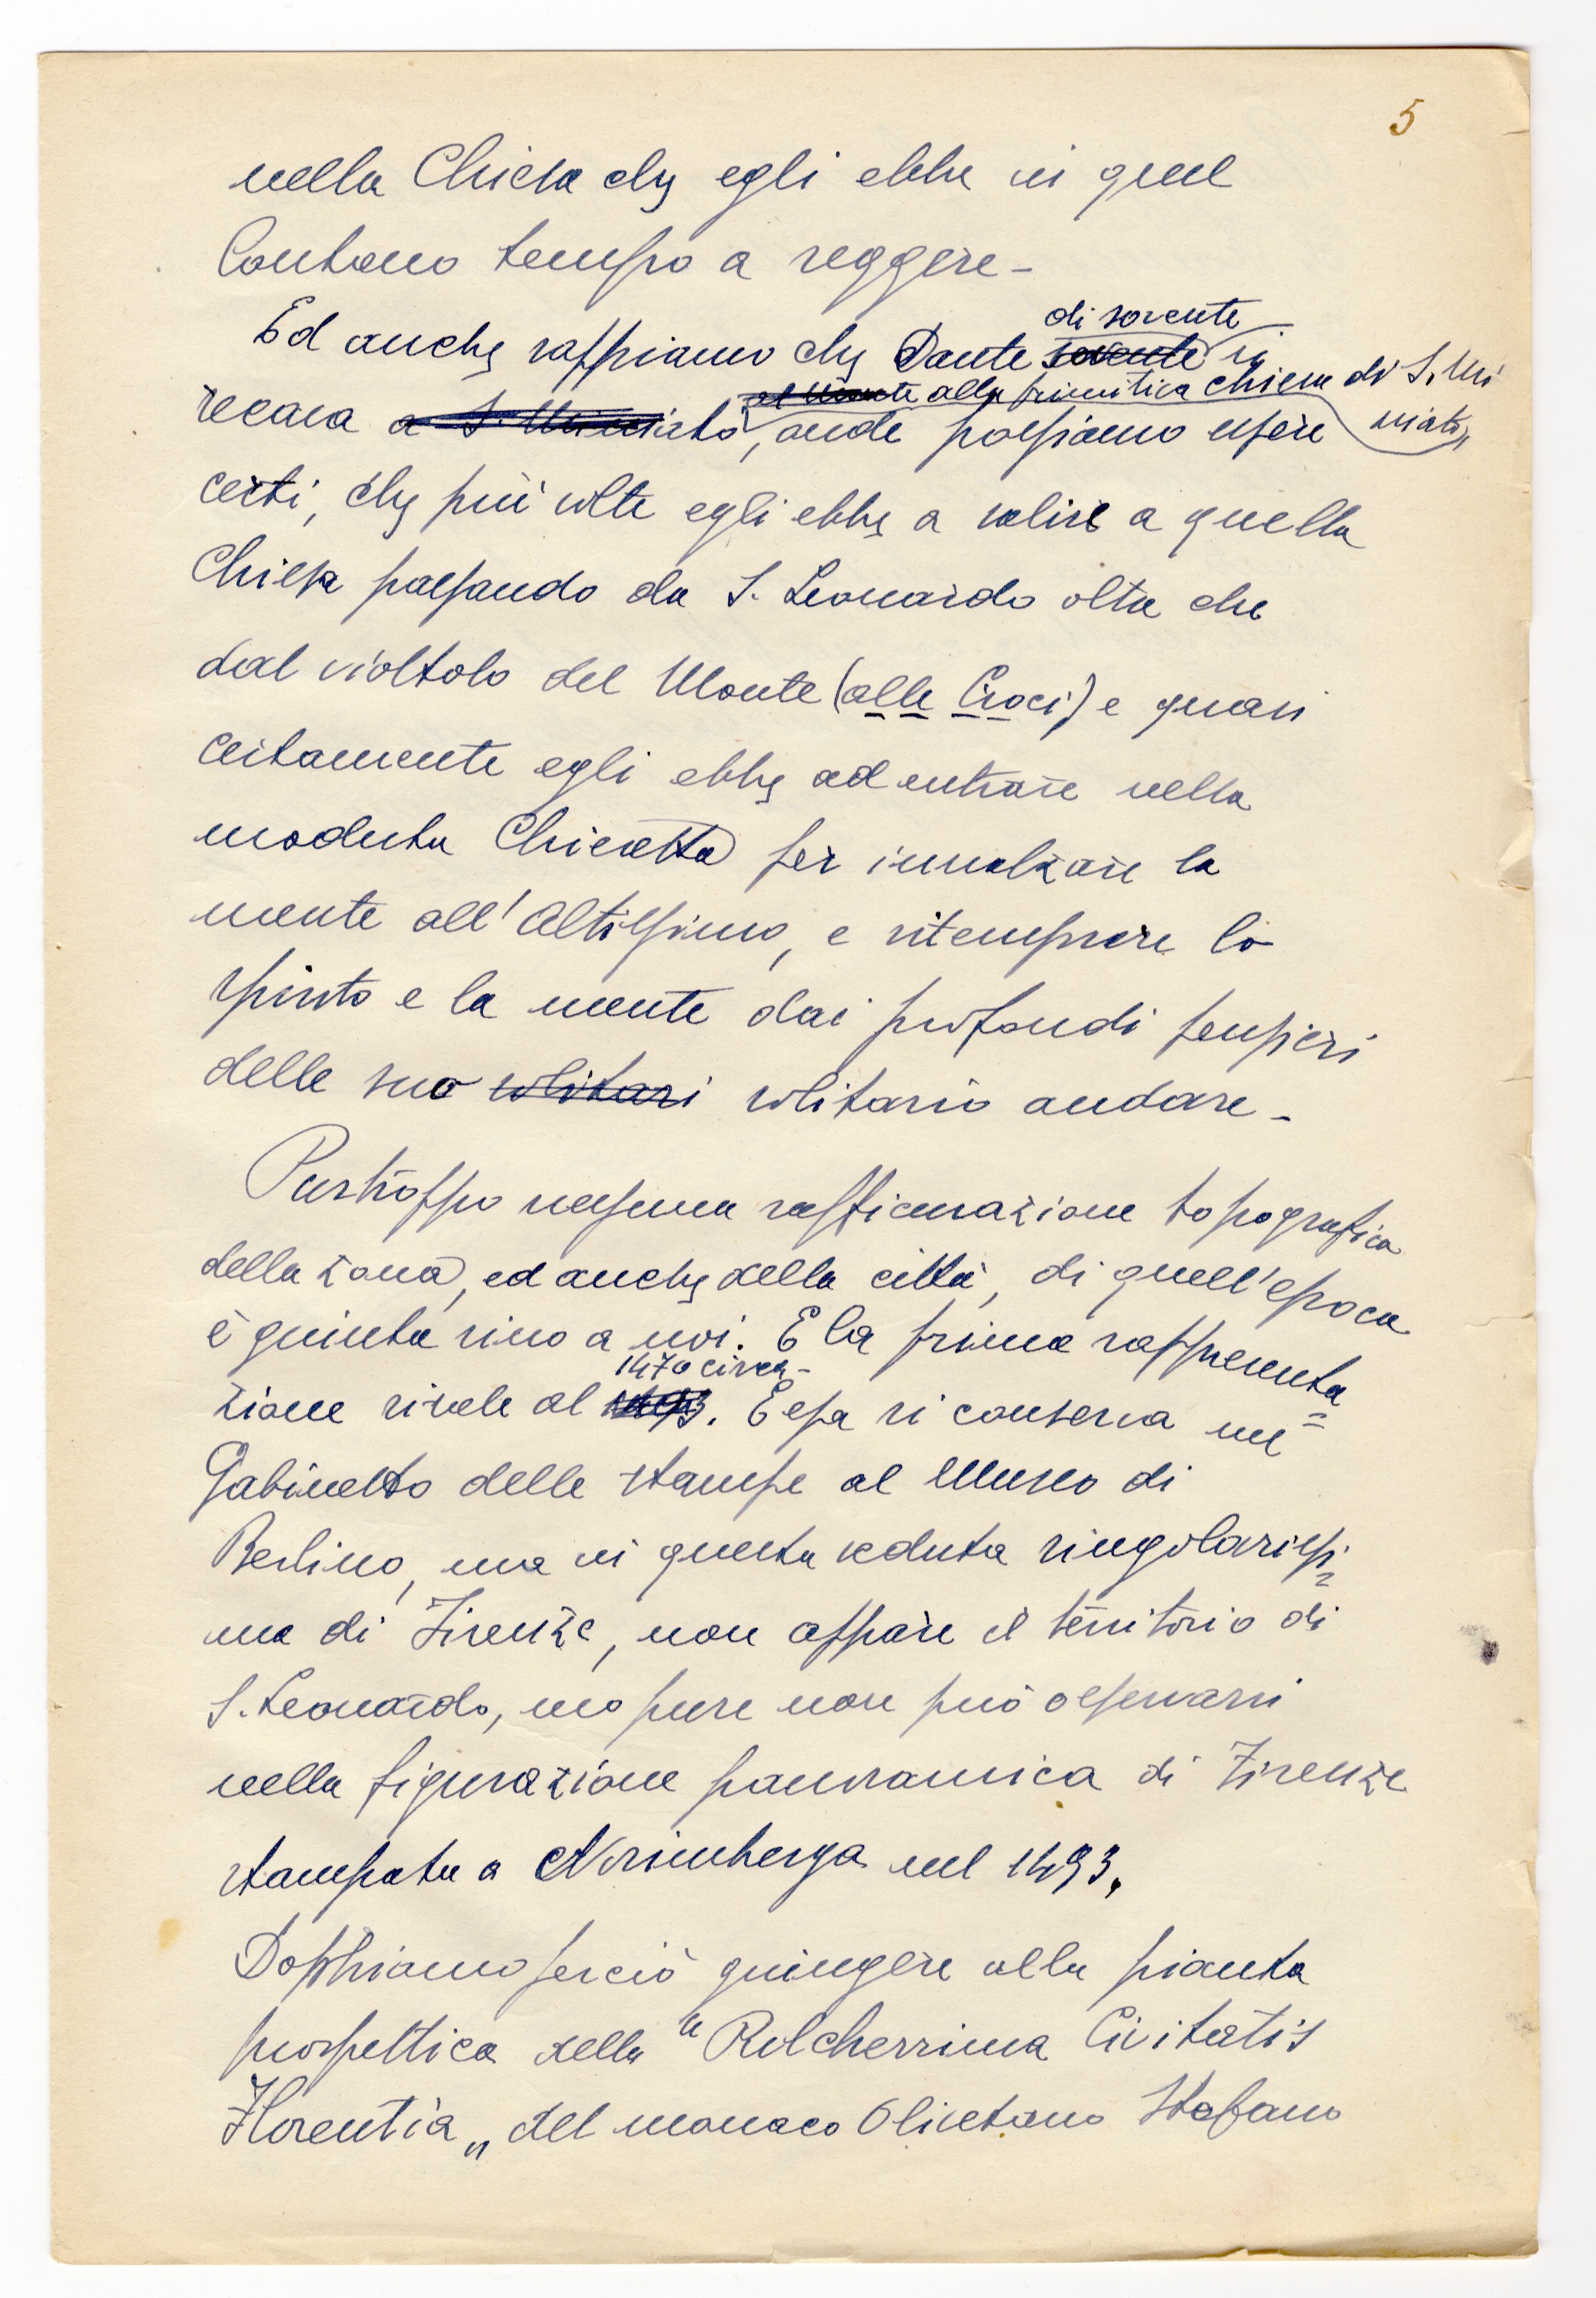 5
nella Chiesa che egli ebbe in quel
lontano tempo a reggere -
di sovente
Ed anche sappiamo che Dante sovente si
al Monte alla primitiva chiesa di S. Mi
recava a S. Miniato, onde possiamo essere
niato,
certi, che più volte egli ebbe a salire a quella
Chiesa passando da S. Leonardo oltre che
dal viottolo del Monte (alle Croci) e quasi
certamente egli ebbe ad entrare nella
modesta Chiesetta per innalzare la
mente all'Altissimo, e ritemprare lo
spirito e la mente dai profondi pensieri
delle suo solitari solitario andare -
Purtroppo nessuna raffigurazione topografica
della zona, ed anche della città, di quell'epoca
è giunta sino a noi. E la prima rappresenta
1470 circa -
zione risale al 1493. Essa si conserva nel =
Gabinetto delle stampe al Museo di
Berlino, ma in questa veduta singolarissi=
ma di Firenze, non appare il territorio di
S. Leonardo, ne pure non può osservarsi
nella figurazione panoramica di Firenze
stampata a Norimberga nel 1493.
Dobbiamo perciò giungere alla pianta
prospettica della "Pulcherrima Civitatis
Florentia" del monaco Olivetano Stefano